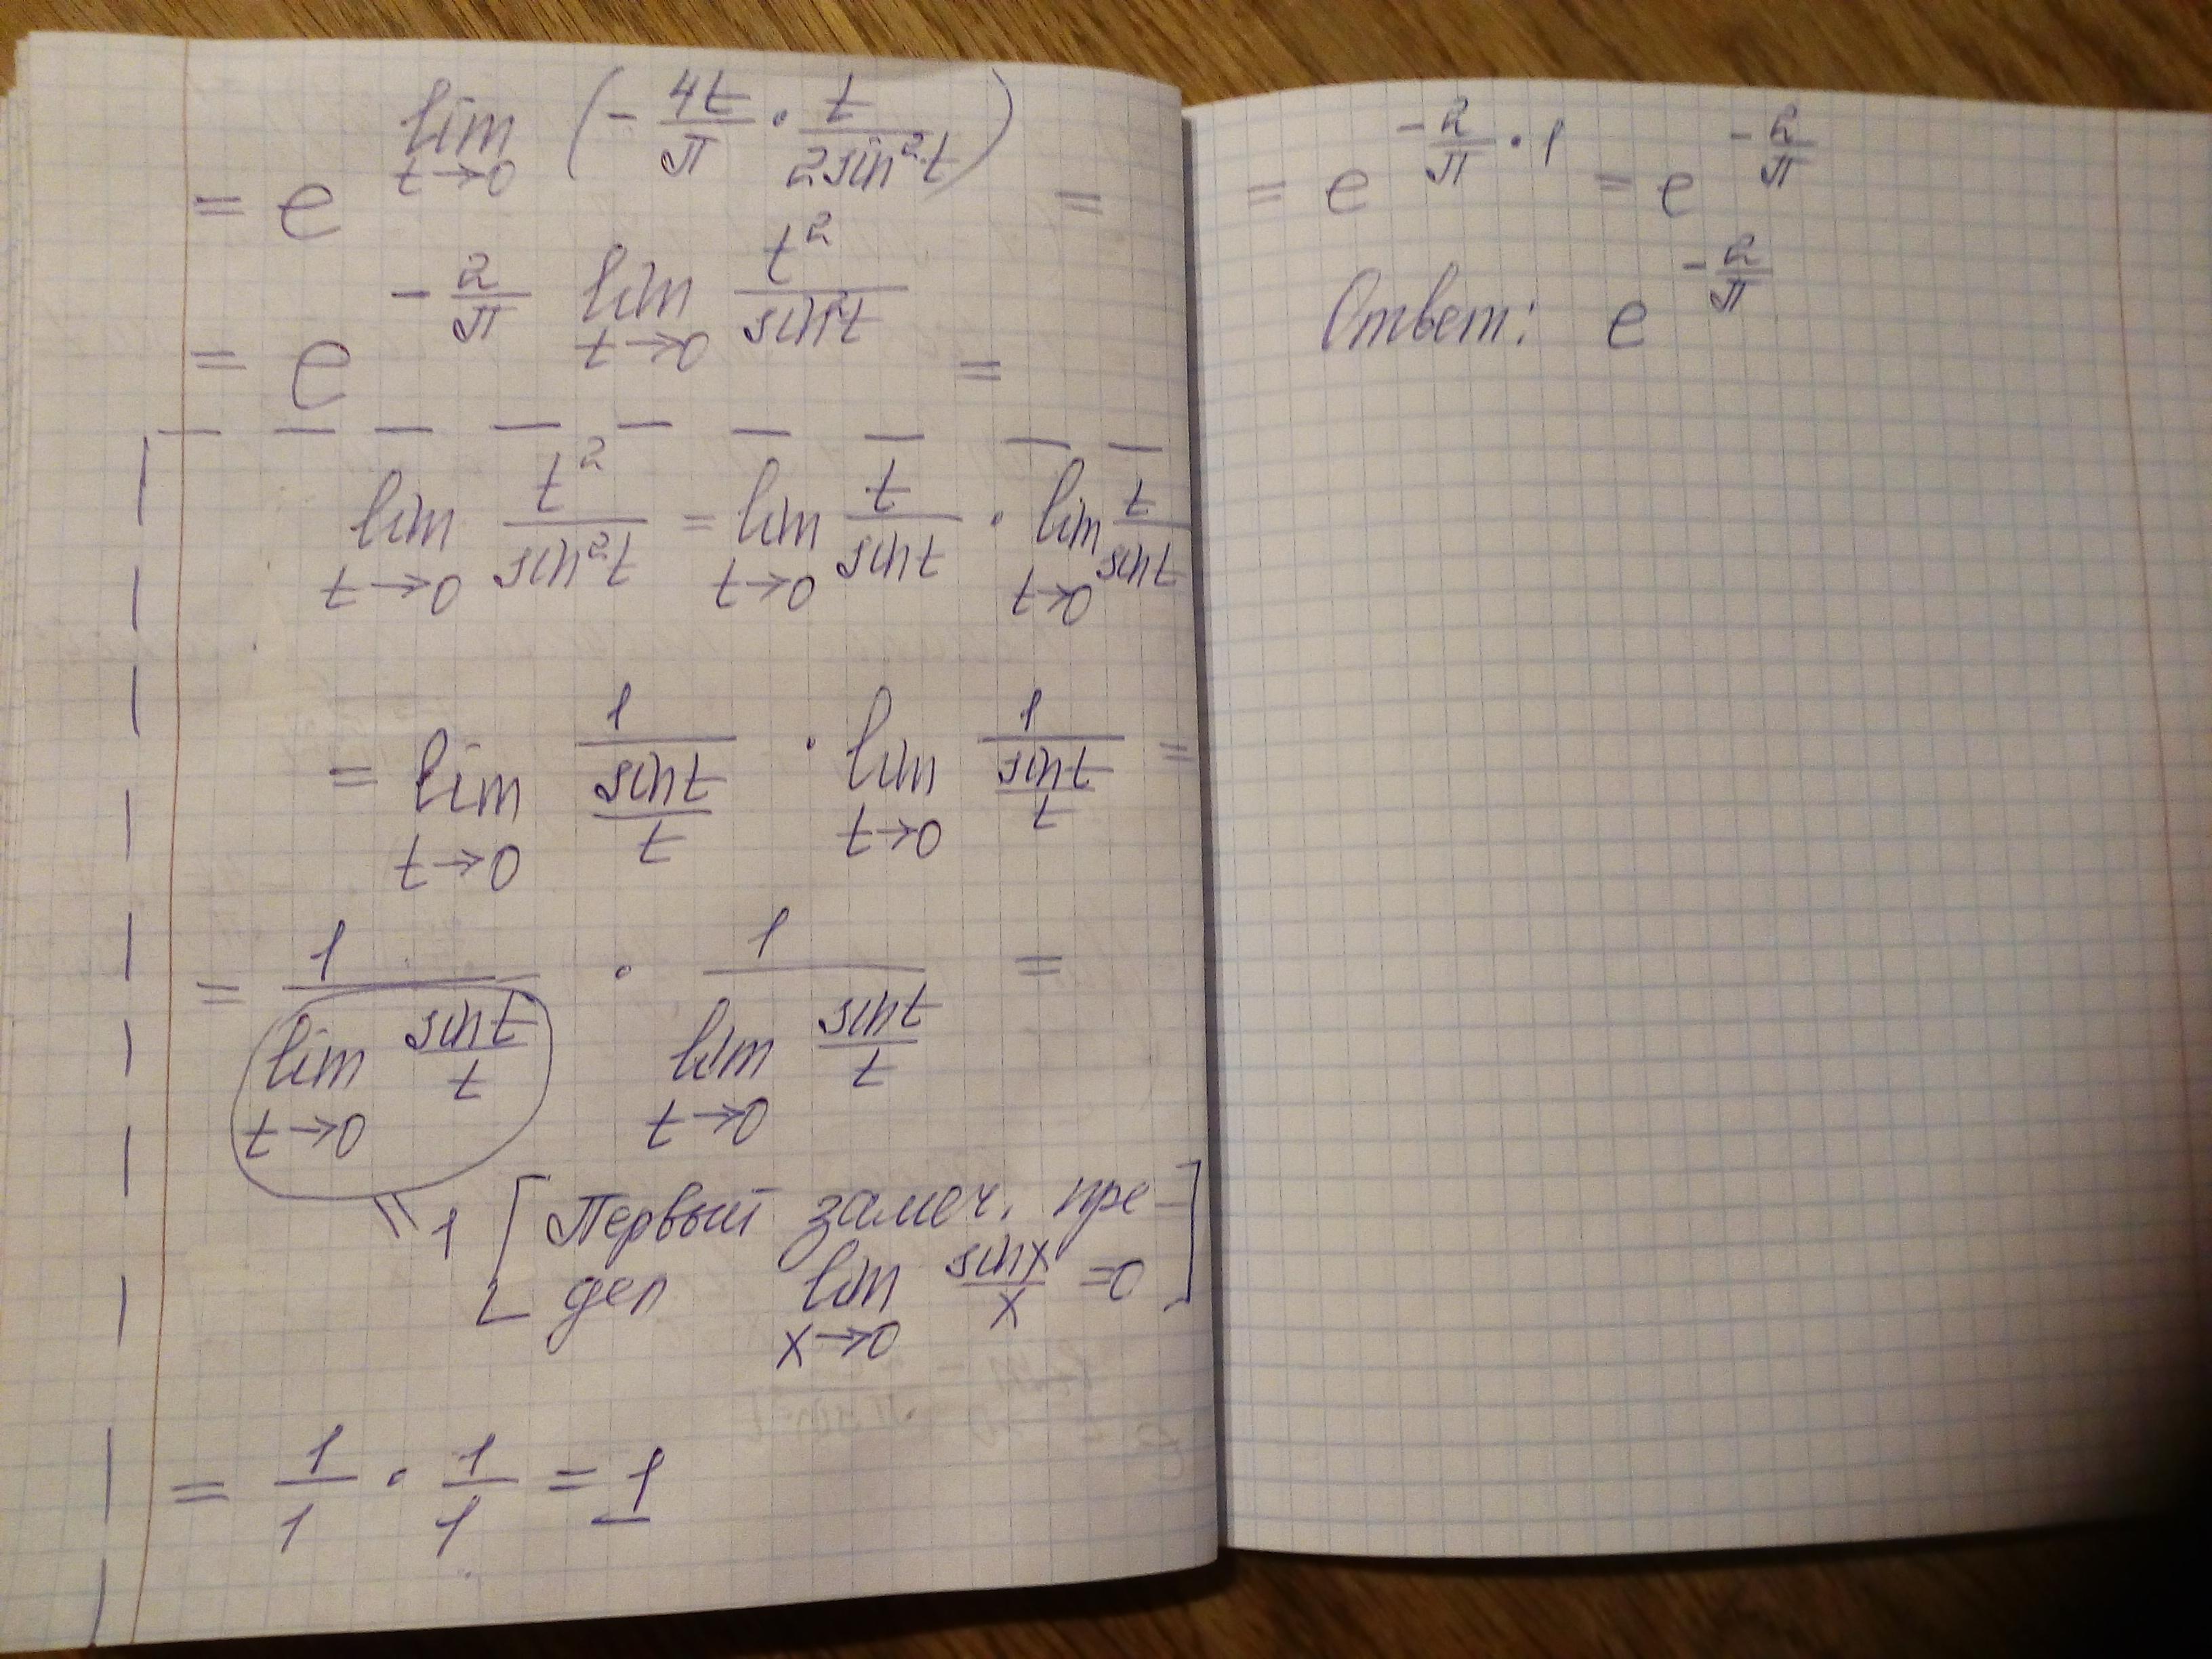 = e^{lim_{t→0} (- 4t/π · t/2sin²t)} =
= e^{- 2/π lim_{t→0} t²/sin²t} =
lim_{t→0} t²/sin²t = lim_{t→0} t/sint · lim_{t→0} t/sint
= lim_{t→0} 1/(sint/t) · lim_{t→0} 1/(sint/t) =
= 1/(lim_{t→0} sint/t) · 1/(lim_{t→0} sint/t) =
= 1 [Первый замеч. пре-
дел lim_{x→0} sinx/x = 0]
= 1/1 · 1/1 = 1
= e^{- 2/π · 1} = e^{- 2/π}
Ответ: e^{- 2/π}